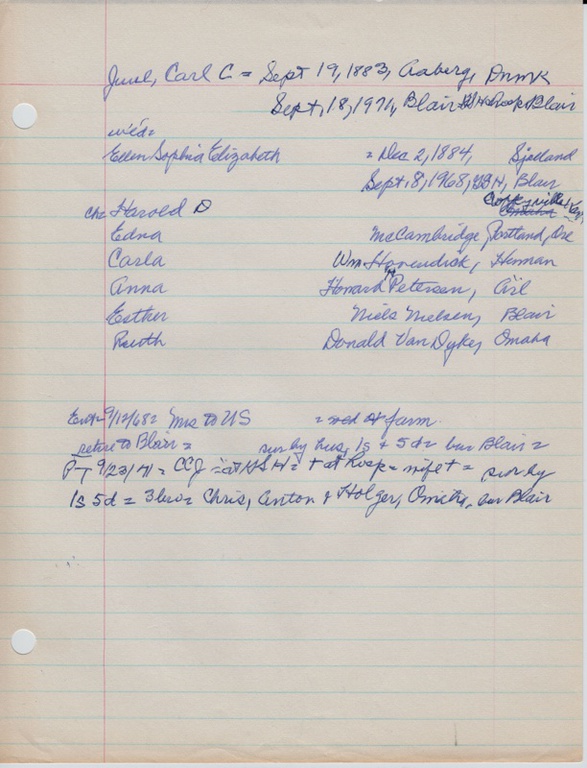 Juul, Carl C = Sept 19, 1883, Aaberg, Dnmk
Sept, 18, 1971, Blair Hosp Blair
wed =
Ellen Sophia Elizabeth = Dec 2, 1884, Sjelland
Sept. 8, 1968, H, Blair
Coffeyville, Kan,
Omaha
ch = Harold D
Edna McCambridge, Portland, Ore
Carla Wm Hovendick, Herman
Anna Howard Petersen, Arl
Esther Niels Nielsen, Blair
Ruth Donald Van Dyke, Omaha
Ent = 9/12/68 = Mrs to US = farm
retire to Blair = sur by hus, 1s + 5d = bur Blair =
P-T 9/23/71 = CCJ = at H = + at Hosp = wife + = sur by
1s 5d = 3 bro = Chris, Anton & Holger, Omaha, bur Blair